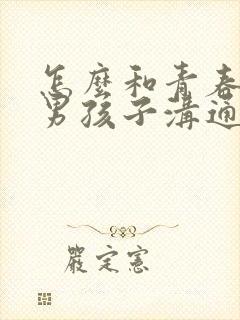 怎麼和青春
男孩子溝通
嚴定憲